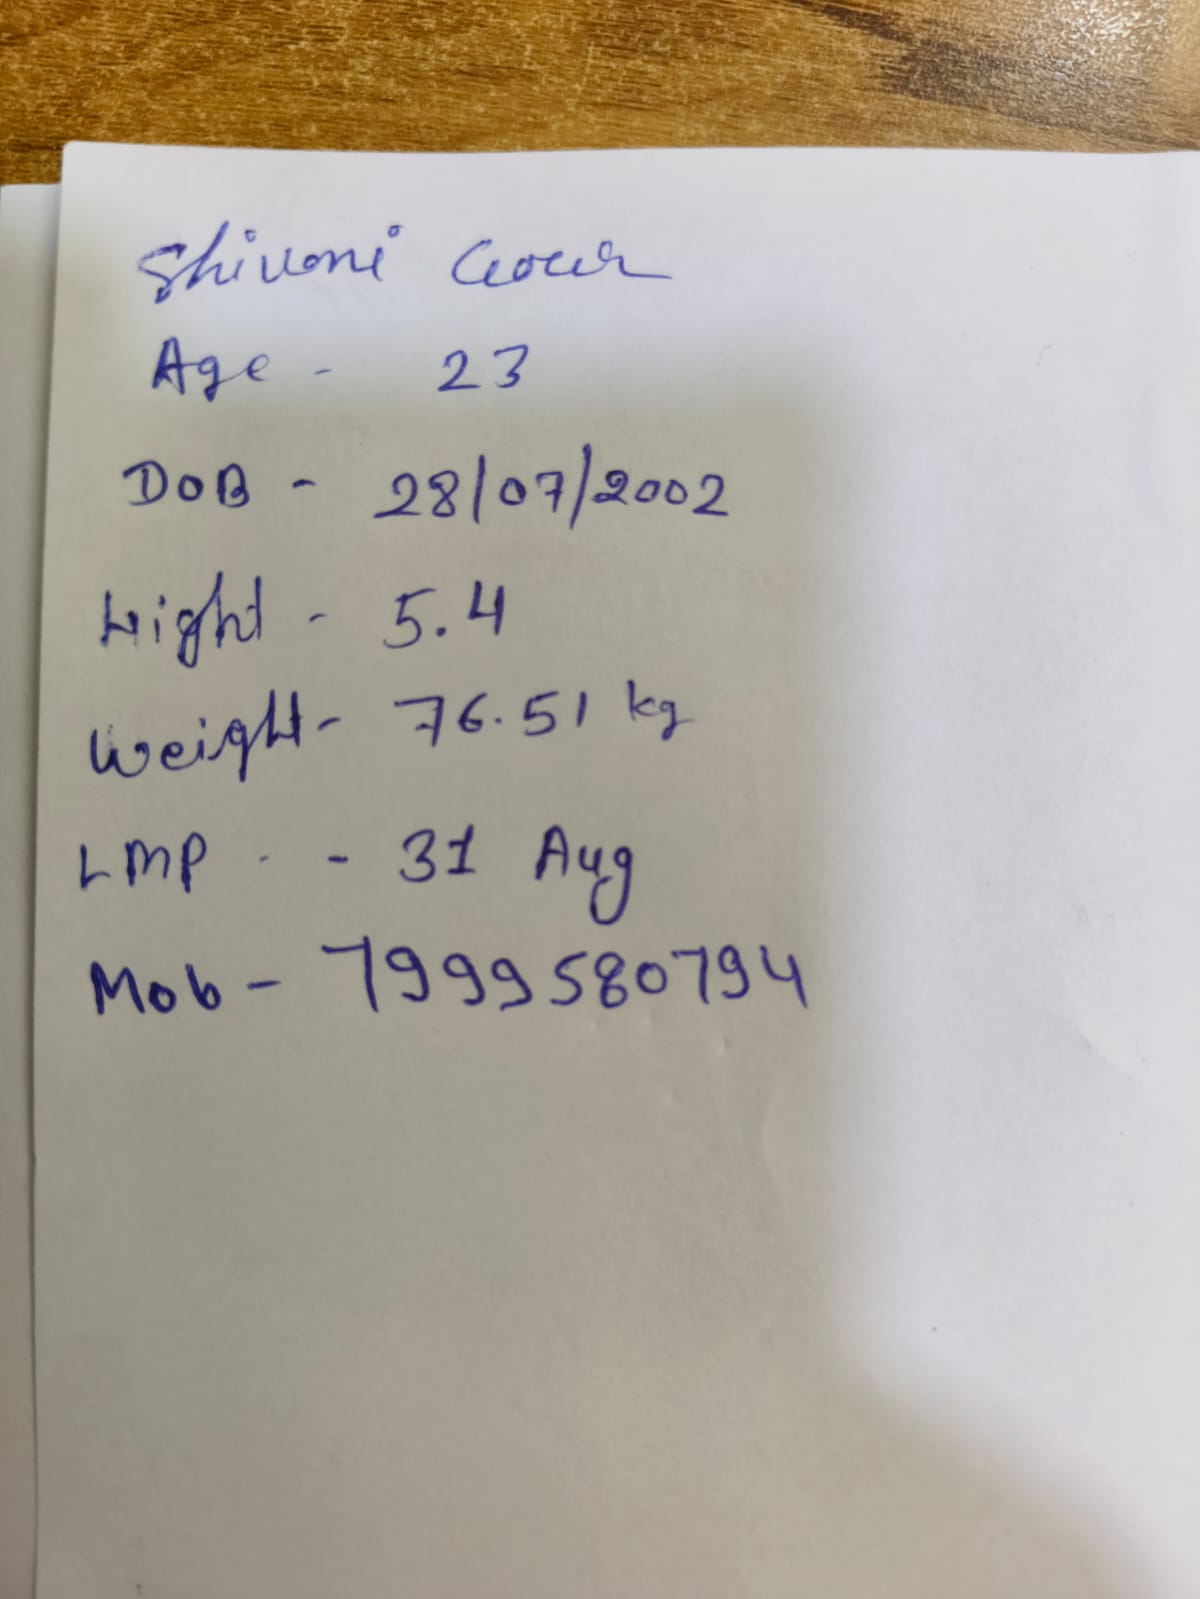 Shivani Gour
Age - 23
DOB - 28/07/2002
Hight - 5.4
Weight - 76.51 kg
LMP - - 31 Aug
Mob - 7999580794